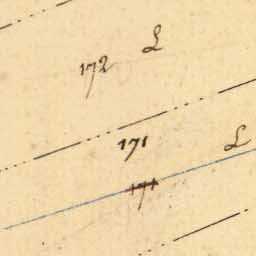 172 L
171 L
171